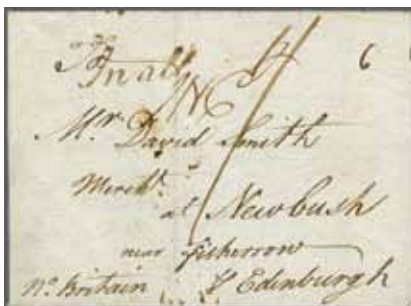 In all
6
Mr. David Smith
Mercht.
at Newbush
near fisherrow
No. Britain Edinburgh